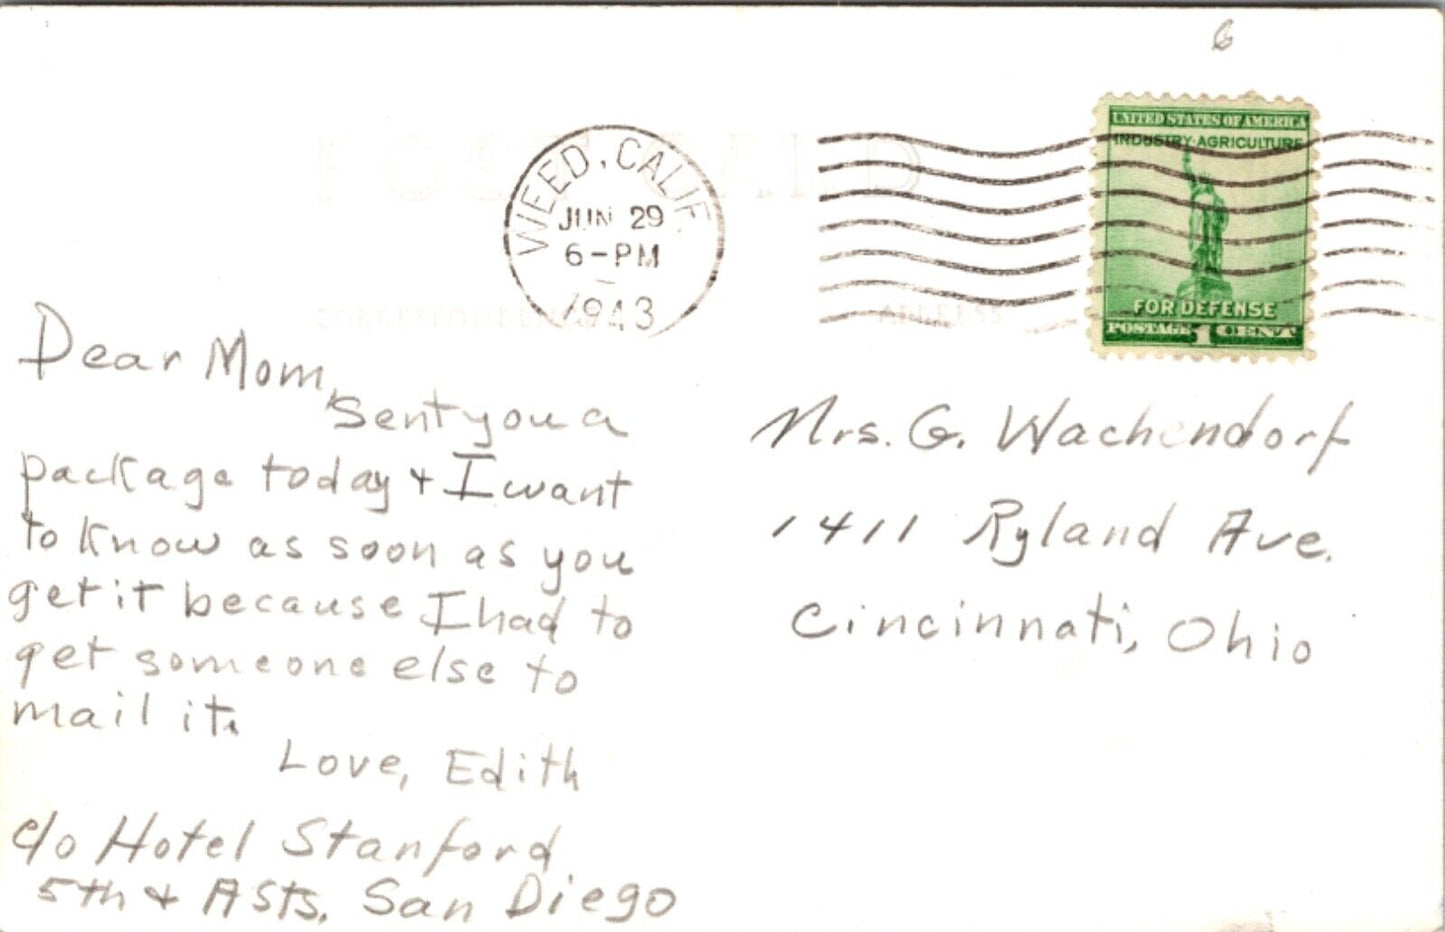 6
POST CARD
WEED, CALIF.
JUN 29
6-PM
1943
UNITED STATES OF AMERICA
INDUSTRY·AGRICULTURE
FOR DEFENSE
POSTAGE 1 CENT
CORRESPONDENCE
ADDRESS
Dear Mom,
Sent you a
package today + I want
to know as soon as you
get it because I had to
get someone else to
mail it.
Love, Edith
c/o Hotel Stanford
5th + A Sts. San Diego
Mrs. G. Wachendorf
1411 Ryland Ave.
Cincinnati, Ohio